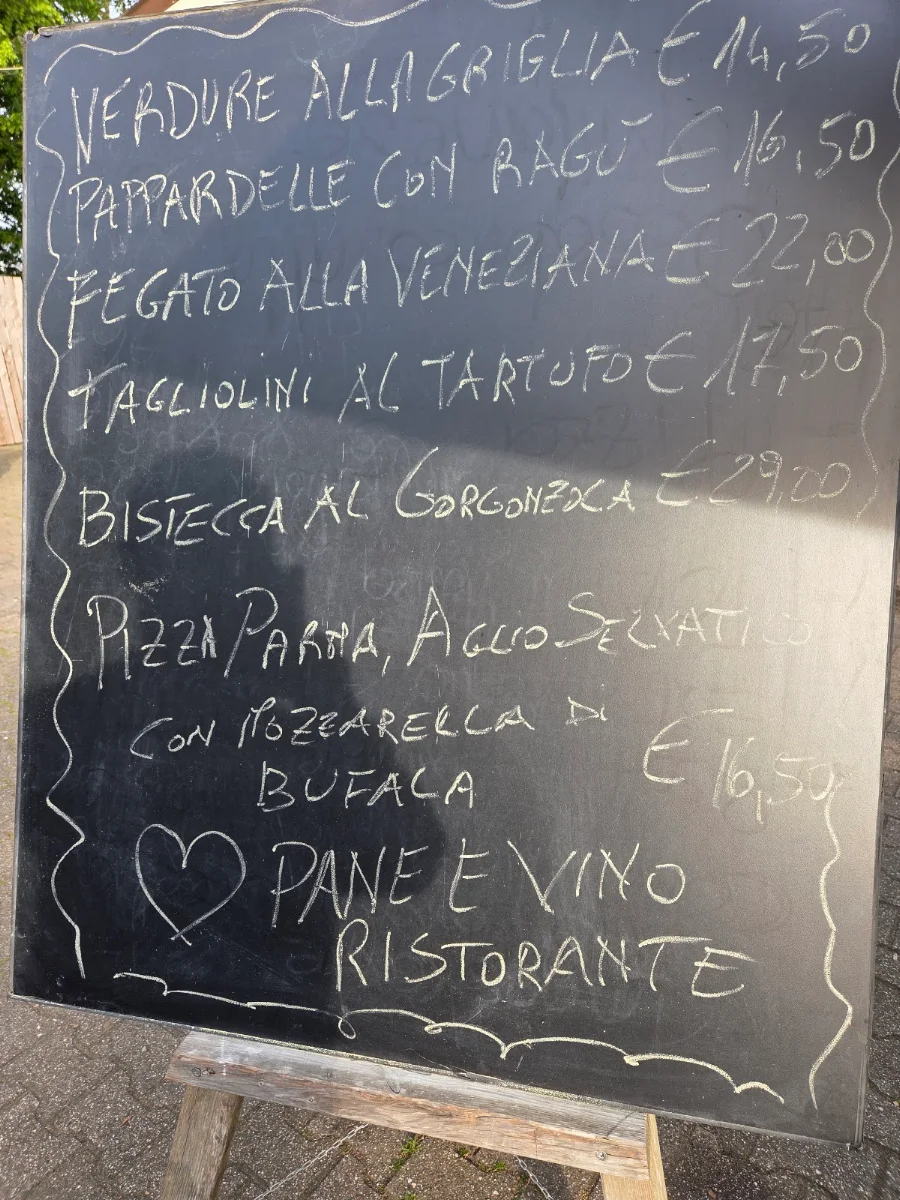 VERDURE ALLA GRIGLIA € 14,50
PAPPARDELLE CON RAGÙ € 16,50
FEGATO ALLA VENEZIANA € 22,00
TAGLIOLINI AL TARTUFO € 17,50
BISTECCA AL GORGONZOLA € 29,00
PIZZA PARMA, AGLIO SELVATICO
CON MOZZARELLA DI
BUFALA € 16,50
PANE E VINO
RISTORANTE